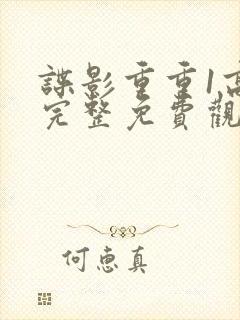 諜影重重1高
完整免費觀
何惠真